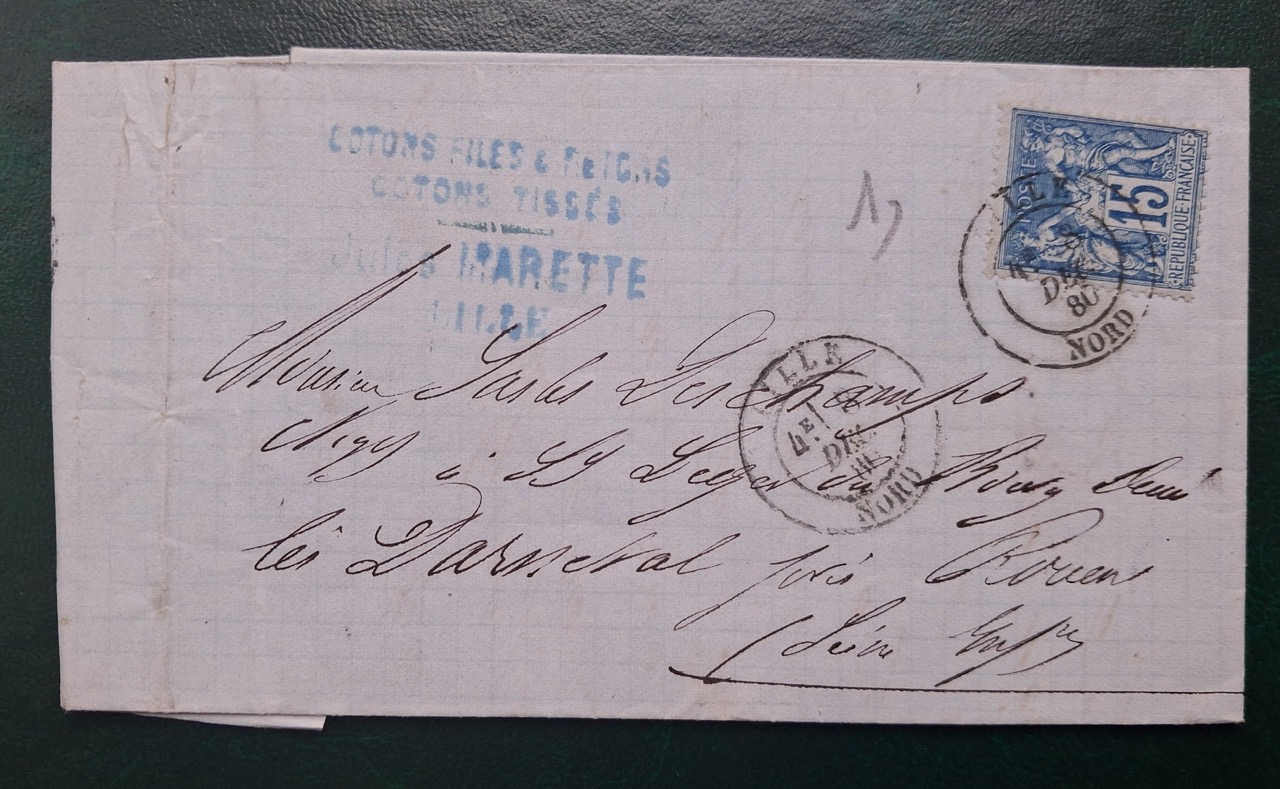 COTONS FILÉS & RETORS
COTONS TISSÉS
Jules MARETTE
LILLE
POSTES
15
REPUBLIQUE FRANÇAISE
LILLE
4E
8
DEC
80
NORD
LILLE
4E
8
DEC
80
NORD
Monsieur Deschamps
à St Leger du Bourg Denis
lès Darnetal près Rouen
(Seine Infre